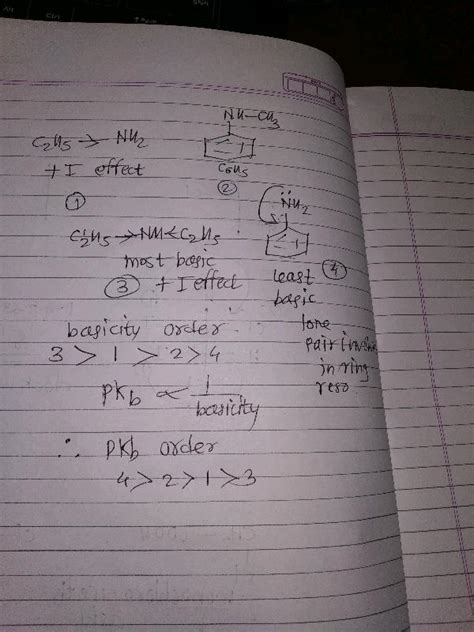 C2H5 → NH2
+ I effect
①
NH-CH3
C6H5
②
C2H5→NH<C2H5
most basic
③ + I effect
NH2
④
least
basic
lone
pair
in ring
reso
basicity order
3 > 1 > 2 > 4
PKb ∝ 1/basicity
∴ PKb order
4 > 2 > 1 > 3